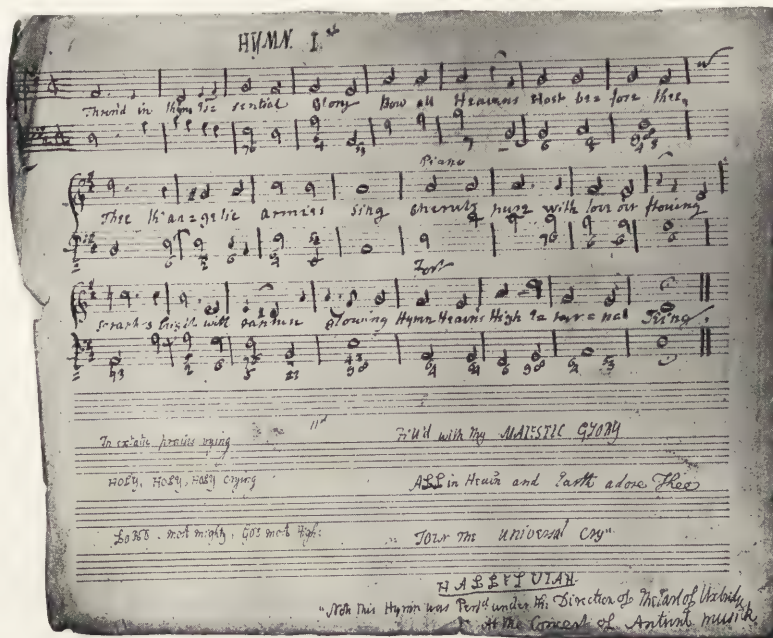 HYMN. I.st
Thron'd in thy es= sential Glory Bow all Heavens Host be= fore thee,
Piano
Thee th'an=gelic armies sing Cherubs pure with love oer flowing
For
Seraphs bright with rapture glowing Hymn Heavns High E= ter= nal King.
IId
In extatic praises vying Fill'd with Thy MAJESTIC GLORY
HOLY, HOLY, HOLY Crying ALL in Heav'n and Earth adore Thee
LORD most mighty, God most High: Tow'r The universal Cry"
HALLELUIAH
"Note This Hymn was Perf.d under the Direction of The Earl of Uxbridg
At the Concert of Antient Musick.